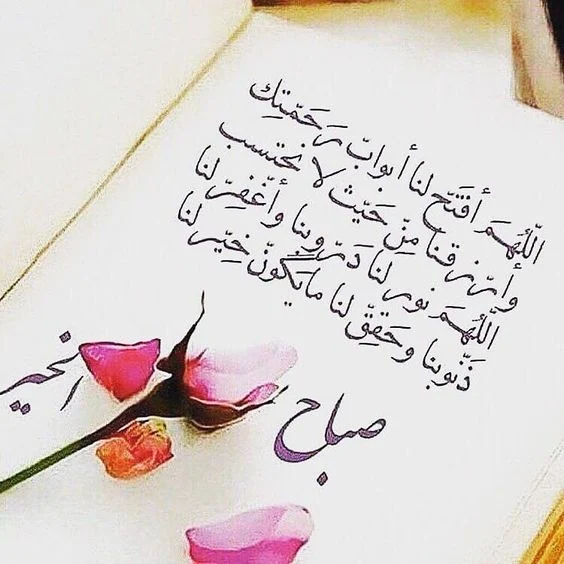 اللّهُمَ أفتَح لنا أبواب رَحَمّتِك
وأرّزقنا مِنّ حَيّث لا نحتسب
اللّهُمَ نور لنا دَرّوبنا وأغّفِرّ لنا
ذَنّوبنا وحَقِقّ لنا مايَكّونّ خِيّر لنا
صباح الخير